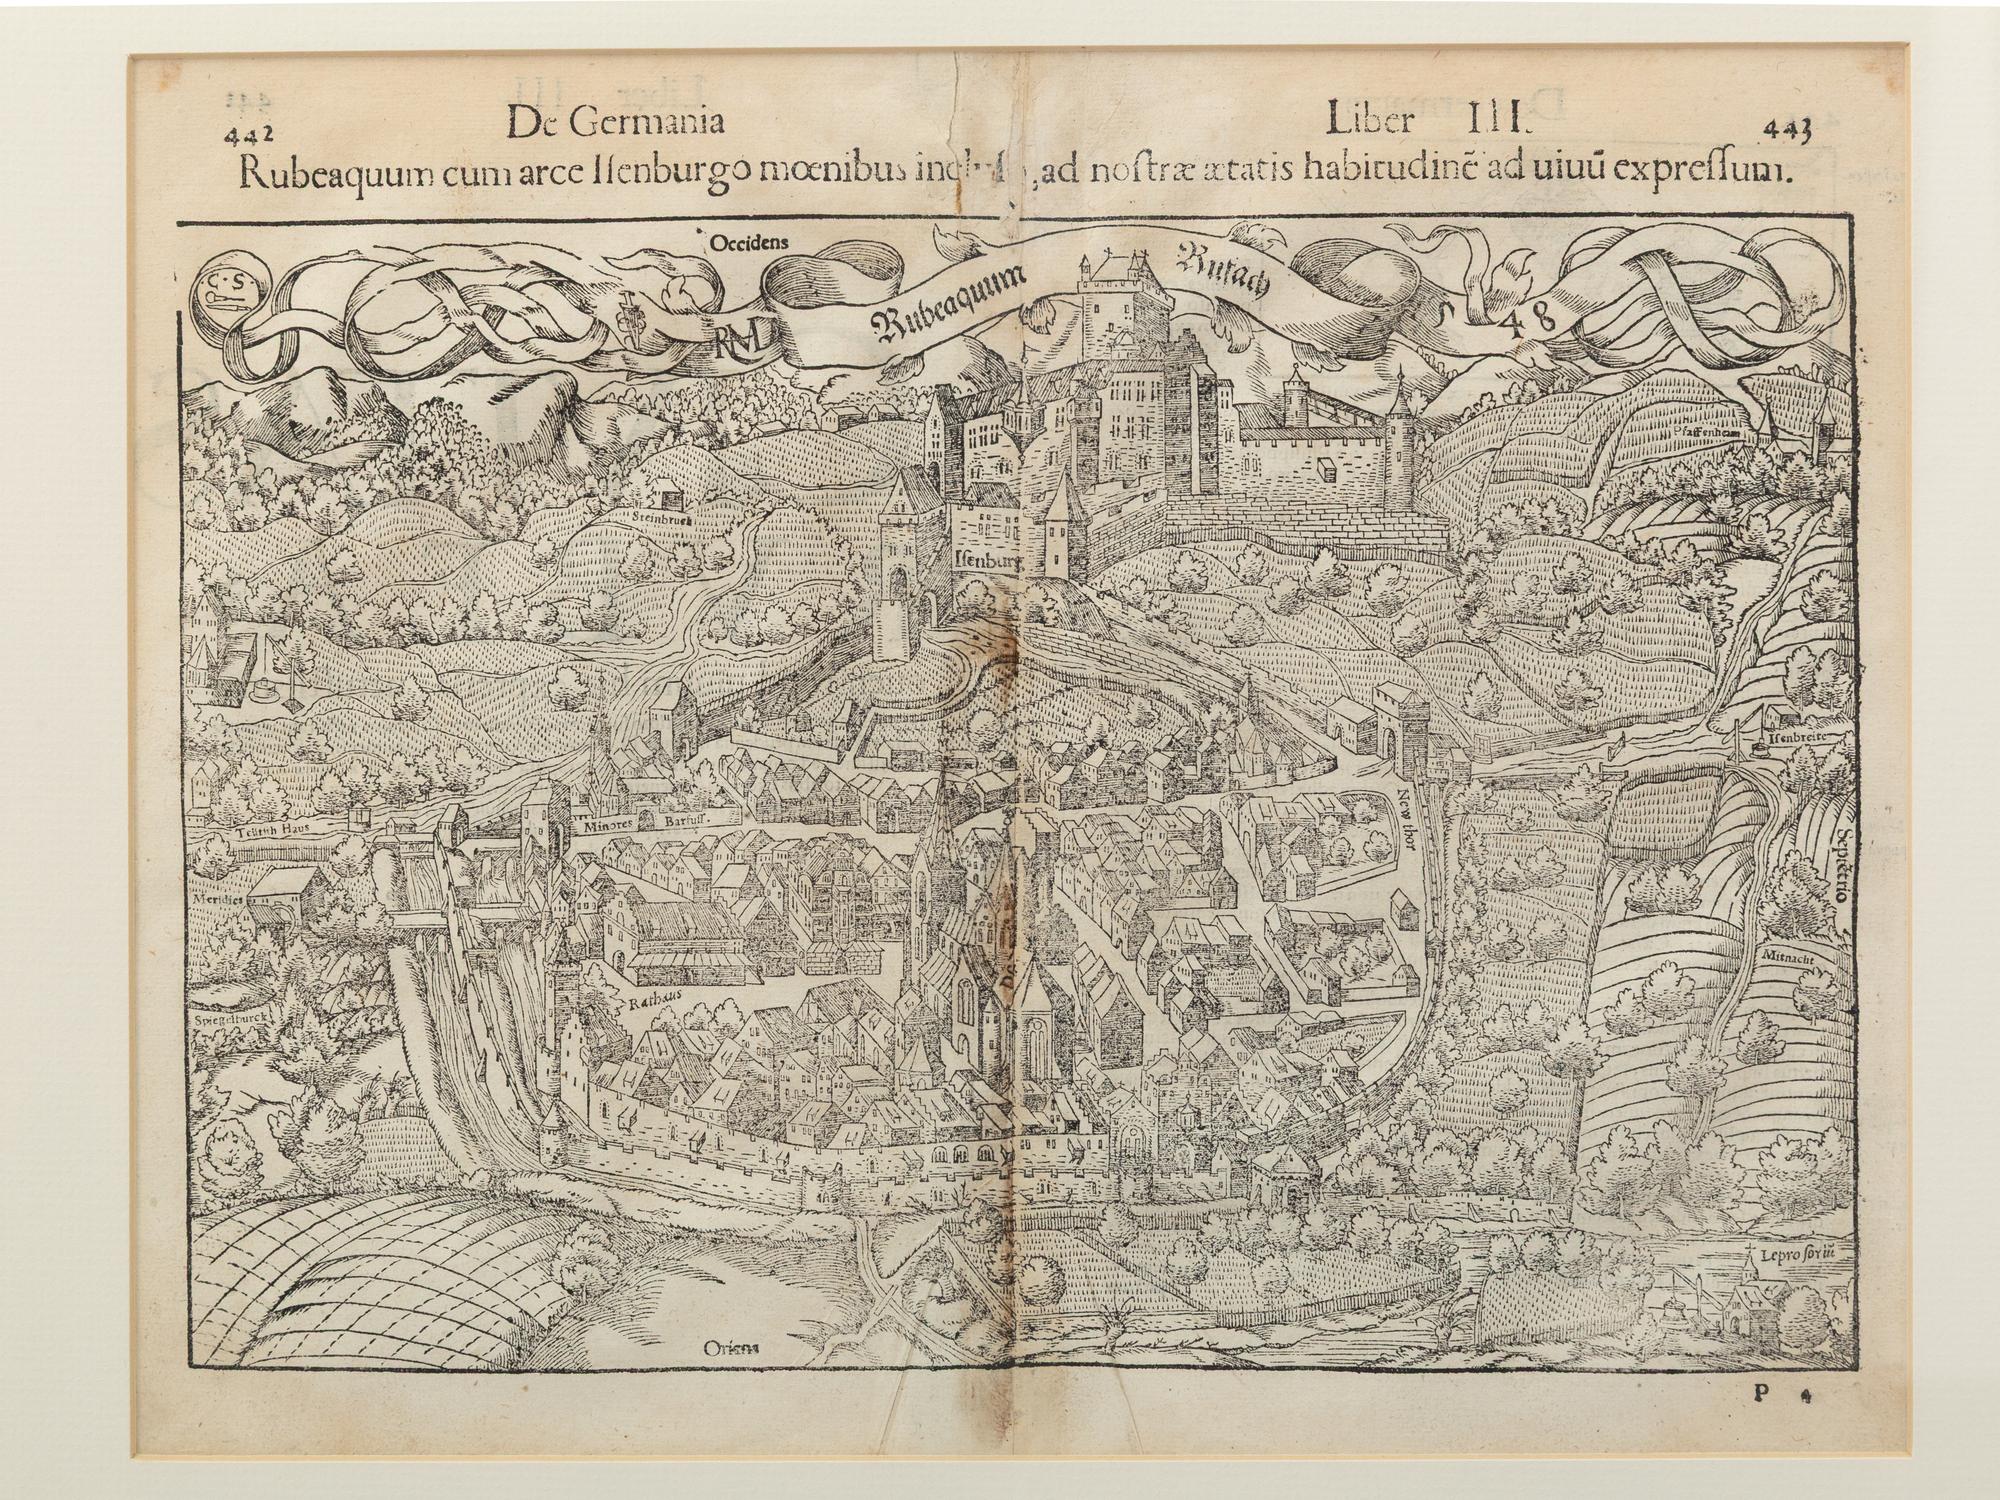 442 De Germania Liber III. 443
Rubeaquum cum arce Iſſenburgo mœnibus ,ad noſtræ ætatis habitudinē ad uiuū expreſſum.
Occidens
C·S·
RMD
Rubeaquum Rufach
48
Pfaffenheim
Steinbruch
Iſſenburg
Iſenbreite
New thor
Teütſch Haus
Minores Barfuſſ.
Septētrio
Meridies
Mitnacht
Rathaus
Spiegelburck
Leproſoriū
Oriens
P 4